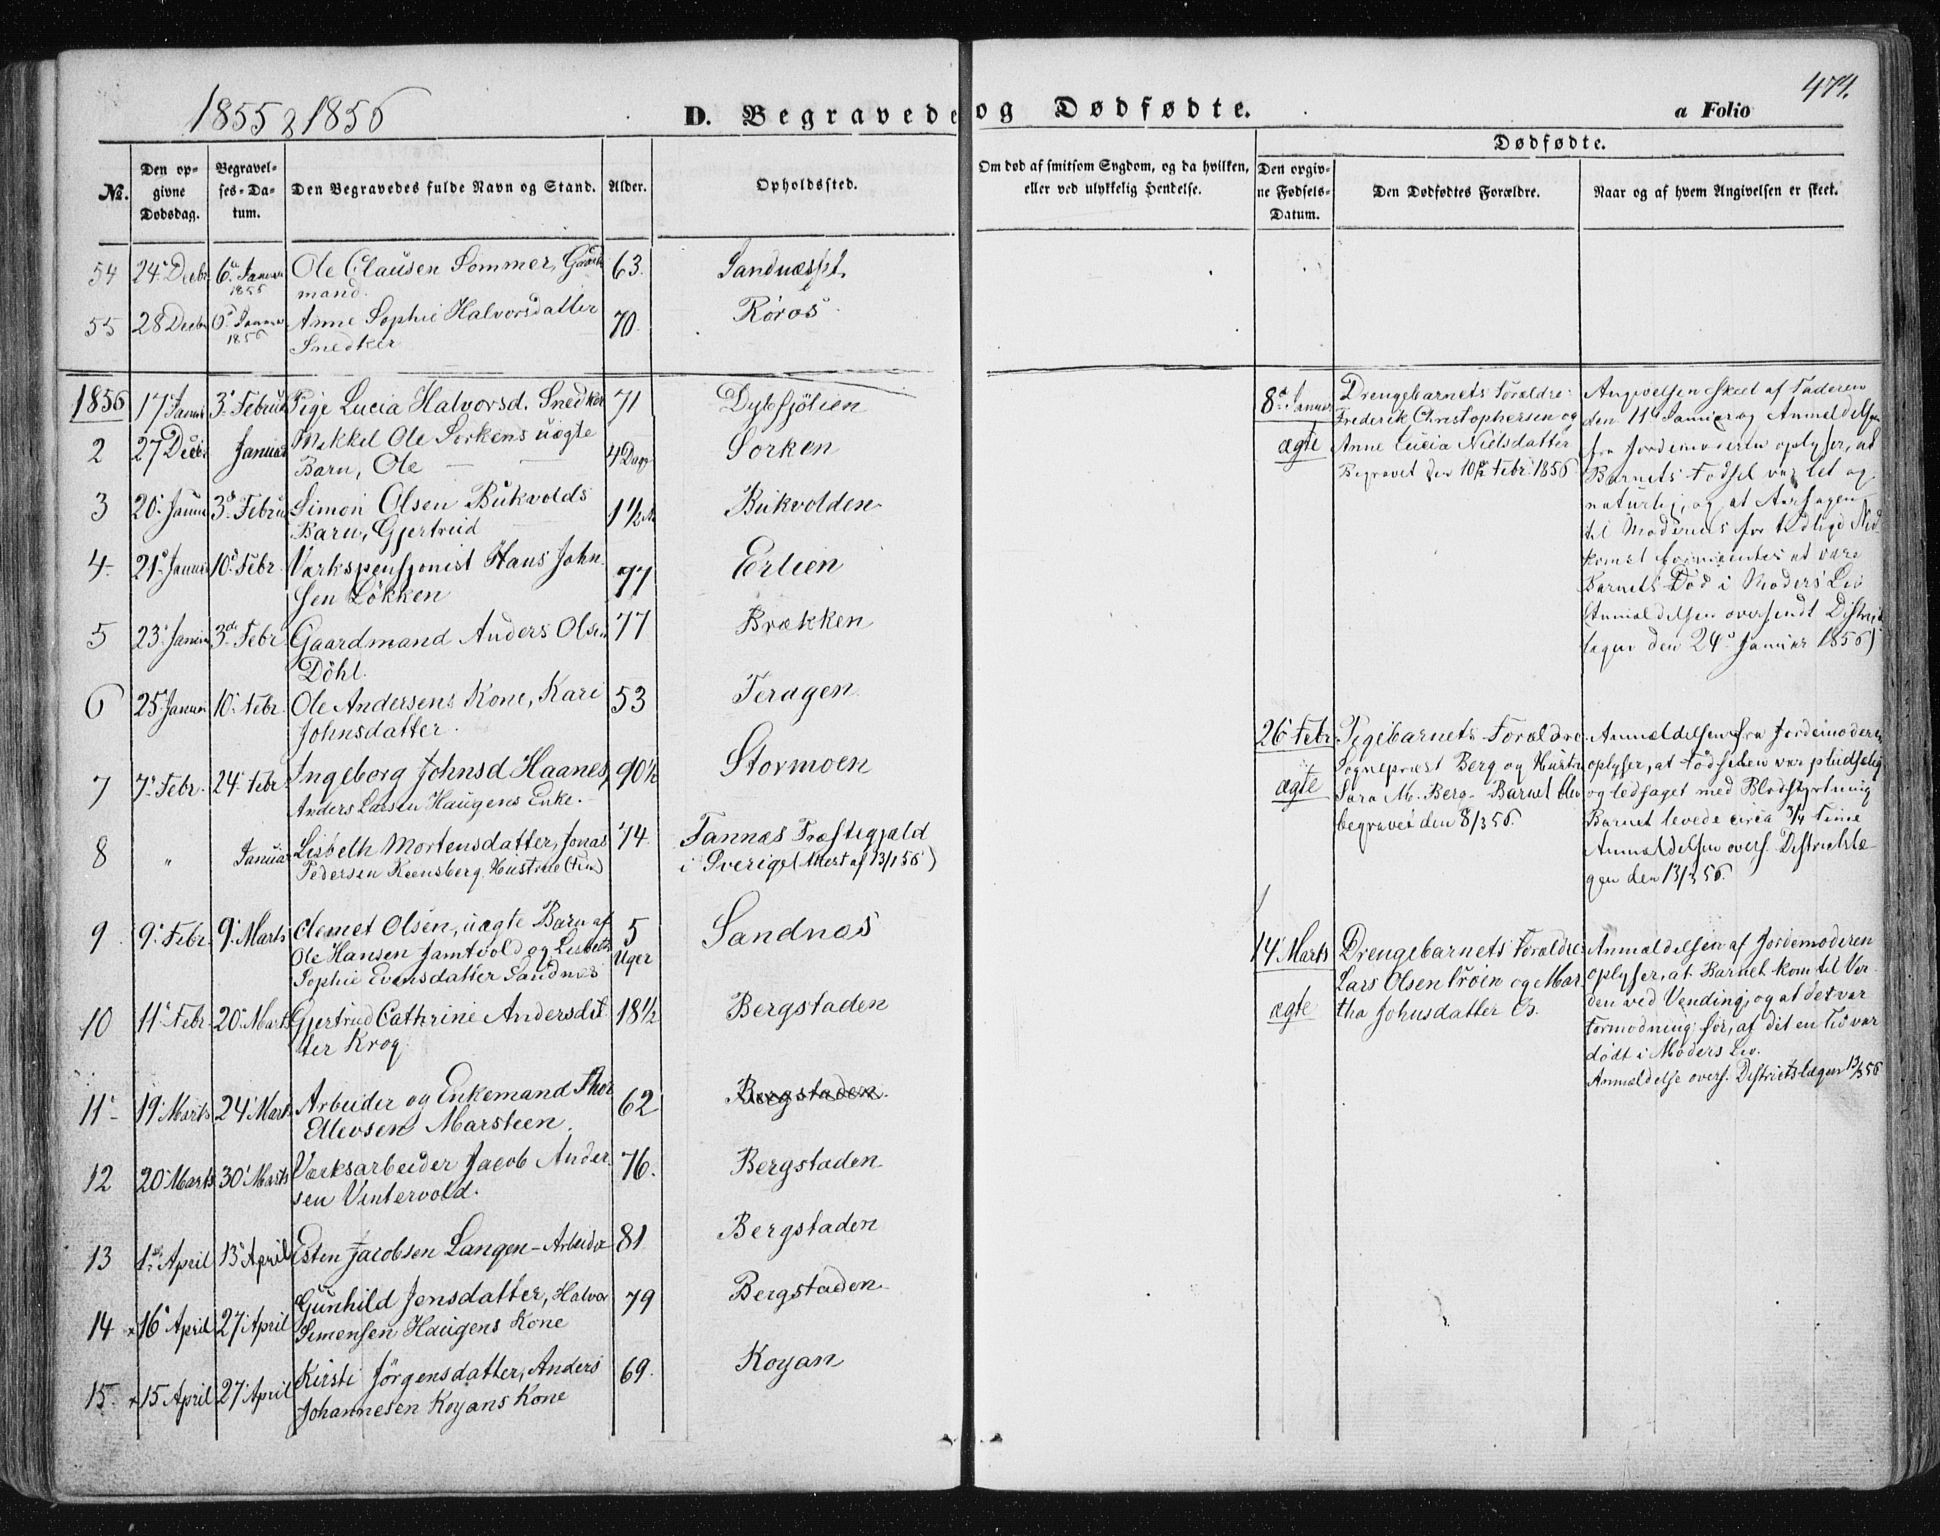 1855 & 1856
D. Begravede og Dødfødte.
a Folio
474.
Dødfødte.
No.
Den opgivne Dødsdag.
Begravelses-Datum.
Den Begravedes fulde Navn og Stand.
Alder.
Opholdssted.
Om død af smitsom Sygdom, og da hvilken, eller ved ulykkelig Hendelse.
Den opgivne Fødsels-Datum.
Den Dødfødtes Forældre.
Naar og af hvem Angivelsen er skeet.
54 24 Decbr 6 Januar 1856 Ole Clausen Sommer, Gaard 63. Sandnæs
mand.
55 28 Decbr 6 Januar 1856 Anne Sophie Halvorsdatter 70. Røros
Snedker
1856 17 Januar 3 Februar Pige Lucia Halvorsd. Snedker 71 Dybsjølien
2 27 Decbr Januar Mikkel Ole Sorkens uægte 4 Dage Sorken
Barn, Ole
3 20 Januar 3 Februar Simon Olsen Bukvolds 1 1/2 Bukvolden
Barn, Gjertrud
4. 21 Januar 10 Febr. Værkspensjonist Hans John 77 Erlien
sen Løkken
5 23 Januar 3de Febr. Gaardmand Anders Olsen 77 Brækken
Döhl.
6 25 Januar 10 Febr. Ole Andersens Kone, Kari 53 Feragen
Johnsdatter.
7 7 Febr. 24 Febr. Ingeborg Johnsd Haanes, 90 1/2 Stormoen
Anders Larsen Haugens Enke.
8 " Januar Lisbeth Mortensdatter, Jonas 74 Tannæs Præstegjæld
Pedersen Hustrue (Fin) i Sverige (Attest af 13/1 56)
9 9 Febr. 9 Marts Klemet Olsen, uægte Barn af 5 Uger Sandnæs
Ole Hansen Jamtvold og Lisbeth
Sophie Evensdatter Sandnæs
10 11 Febr. 20 Marts Gjertrud Cathrine Andersdat 18 1/2 Bergstaden
ter Krog.
11 19 Marts 24 Marts Arbeider og Enkemand Thor 62 Bergstaden
Ellevsen Marsteen.
12 20 Marts 30 Marts Værksarbeider Jacob Ander 76. Bergstaden
sen Vintervold.
13 1ste April 13 April Esten Jacobsen Langen - Arbeider 81 Bergstaden
14 16 April 27 April Gunhild Jensdatter, Halvor 79 Bergstaden
Simensen Haugens Kone
15. 15 April 27 April Kirsti Jörgensdatter, Anders 69. Koyan
Johannesen Koyans Kone
8 Januar
ægte
Drengebarnets Forældre:
Frederik Christophersen og
Anne Lucia Nielsdatter
Begravet den 10de Febr. 1856
Angivelsen skeet af Faderen
den 11 Januar og Anmeldelsen
fra Jordemoderen oplyser, at
Barnets Fødsel var let og
naturlig, og at Aarsagen
til Moderens for tidlige Ned-
komst formeentes at være
Barnets Død i Moders Liv
Anmeldelsen oversendt Distrikts
lægen den 24 Januar 1856)
26 Febr.
ægte
Pigebarnets Forældre
Sognepræst Berg og Hustru
Sara M. Berg. Barnet blev
begravet den 8/3 56.
Anmældelsen fra Jordemoderen
oplyser, at Fødselen var pludselig
og ledsaget med Blodstyrtning
Barnet levede circa 3/4 Time
Anmældelsen overs. Districtslæ-
gen den 13/3 56.
14 Marts
ægte
Drengebarnets Forældre
Lars Olsen Trøen og Mar
tha Johnsdatter
Anmældelsen af Jordemoderen
oplyser, at Barnet kom til Ver
den ved Vending, og at det var
Formodning for, at det en Tid var
dødt i Moders Liv.
Anmældelse overs. Districtslægen